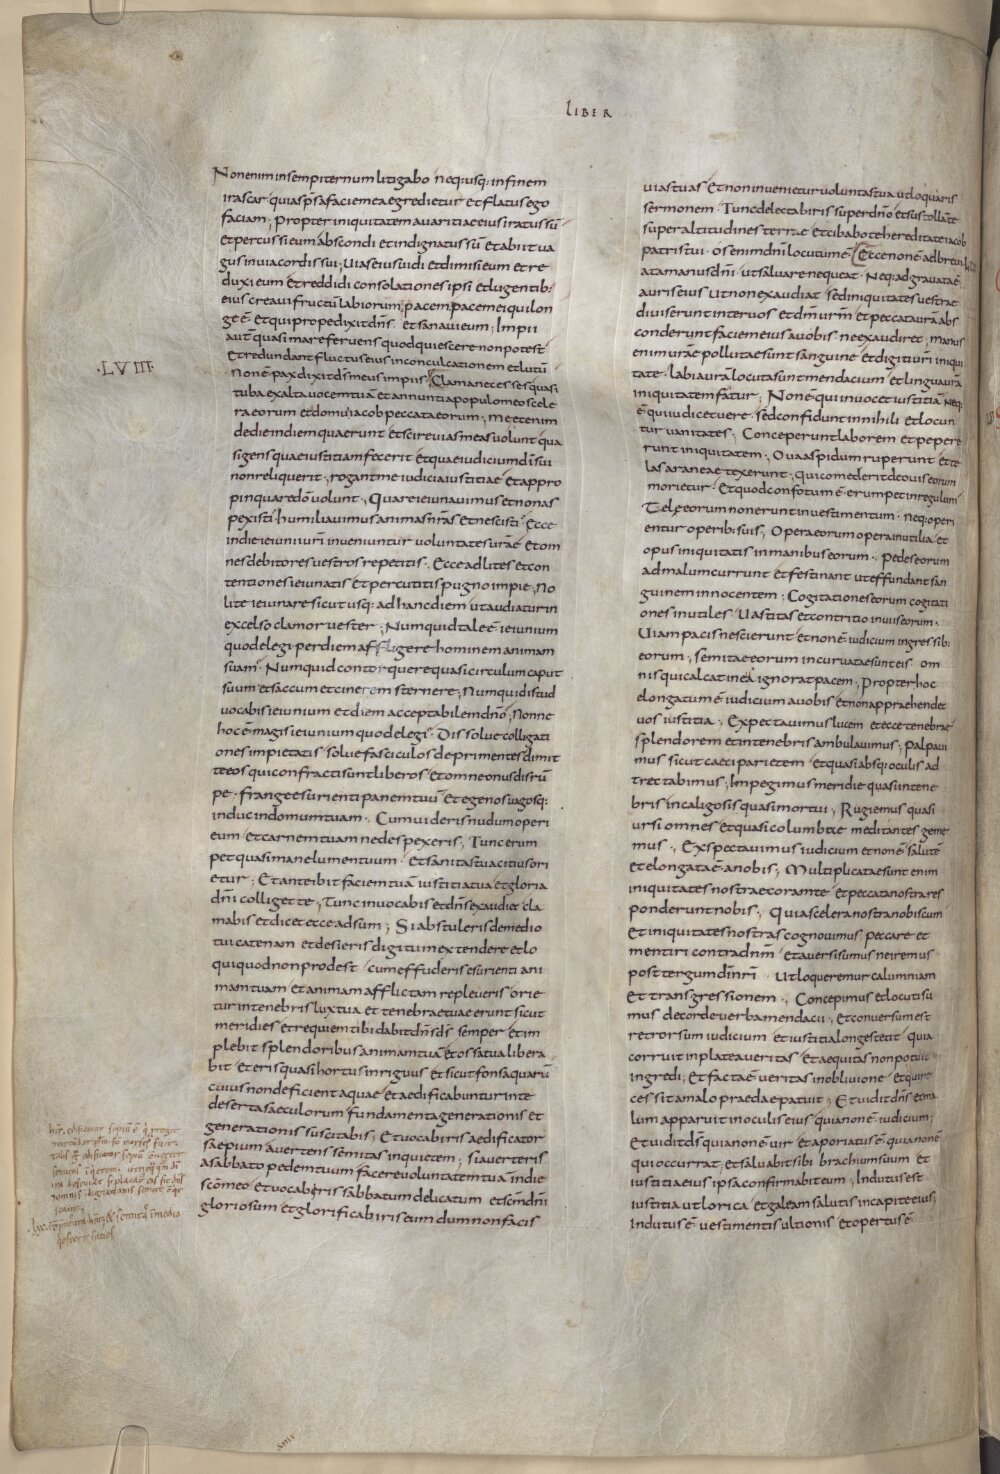 LIBER
Nonenim insempiternum litigabo neq; usq; infinem
irascar quia sp̄s afaciemea egredietur et flatus ego
faciam; Propter iniquitatem avaritiae eius iratus sū
et percussi eum abscondi et indignatus sū et abiit va
gus in via cordis sui; Vias eius vidi et dimisi eum et re
duxi eum et reddidi consolationes ipsi et lugentib;
eius creavi fructū labiorum pacem pacem ei qui lon
ge ē et qui prope dixit dn̄s et sanavi eum; Impii
aut̄ quasi mare fervens quod quiescere non potest
et redundant fluctus eius in conculcationem et lutū
Non ē pax dixit ds̄ meus impiis; Clama ne cesses quasi
·LVIII·
tuba exalta vocem tuā et annuntia populo meo scele
ra eorum et domui iacob peccata eorum; Me etenim
de die in diem quaerunt et scire vias meas volunt qua
si gens quae iustitiam fecerit et quae iudicium dī sui
non reliquerit; rogant me iudicia iustitiae et appro
pinquare dō volunt; Quare ieiunavimus et non as
pexisti humiliavimus animas nr̄as et nescisti; Ecce
in die ieiunii ur̄i invenitur voluntas ur̄ā et om
nes debitores vestros repetitis; Ecce ad lites et con
tentiones ieiunatis et percutitis pugno impie; No
lite ieiunare sicut usq; ad hanc diem ut audiatur in
excelso clamor vester; Numquid tale ē ieiunium
quod elegi per diem affligere hominem animam
suam; Numquid contorquere quasi circulum caput
suum et saccum et cinerem sternere; Numquid istud
vocabis ieiunium et diem acceptabilem dn̄o; Nonne
hoc ē magis ieiunium quod elegi; Dissolve colligati
ones impietatis solve fasciculos deprimentes dimit
te eos qui confracti sunt liberos et omne onus disrū
pe; Frange esurienti panem tuū et egenos vagosq;
induc in domum tuam; Cum videris nudum operi
eum et carnem tuam ne despexeris; Tunc erum
pet quasi mane lumen tuum et sanitas tua citius ori
etur; Et anteibit faciem tuā iustitia tua et gloria
dn̄i colliget te; Tunc invocabis et dn̄s exaudiet cla
mabis et dicet ecce adsum; Si abstuleris de medio
tui catenam et desieris digitum extendere et lo
qui quod non prodest cum effuderis esurienti ani
mam tuam et animam afflictam repleveris orie
tur in tenebris lux tua et tenebrae tuae erunt sicut
meridies et requiem tibi dabit dn̄s ds̄ semper et im
plebit splendoribus animam tuā et ossa tua libera
bit et eris quasi hortus inriguus et sicut fons aquarū
cuius non deficient aquae et aedificabuntur in te
deserta saeculorum fundamenta generationis et
generationis suscitabis; Et vocaberis aedificator
saepium avertens semitas in quietem; si averteris
a sabbato pedem tuum facere voluntatem tuā in die
sc̄o meo et vocaberis sabbatum delicatum et sc̄m dn̄i
gloriosum et glorificaberis eum dum non facis
vias tuas et non invenietur voluntas tua ut loquaris
sermonem Tunc delectaberis super dn̄o et sustollā te
super altitudines terrae et cibabo te hereditate iacob
patris tui os enim dn̄i locutum ē; Ecce non ē adbrevi
ata manus dn̄i ut salvare nequeat Neq; adgravata ē
auris eius ut non exaudiat sed iniquitates vestrae
diviserunt inter vos et dm̄ ur̄m et peccata ur̄ā abs
conderunt faciem eius a vobis ne exaudiret; manus
enim ur̄ae pollutae sunt sanguine et digiti ur̄i iniqui
tate labia ur̄ā locuta sunt mendacium et lingua ur̄ā
iniquitatem fatur; Non ē qui invocet iustitiā neq;
ē qui iudicet vere sed confidunt in nihili et locun
tur vanitates; Conceperunt laborem et pepere
runt iniquitatem; Ova aspidum ruperunt et te
las araneae texerunt qui comederit de ovis eorum
morietur Et quod confotum ē erumpet in regulum
Tele eorum non erunt in vestimentum neq; operi
entur operibus suis; Opera eorum opera inutilia et
opus iniquitatis in manibus eorum; Pedes eorum
ad malum currunt et festinant ut effundant san
guinem innocentem; Cogitationes eorum cogitati
ones inutiles Vastitas et contritio in viis eorum
Viam pacis nescierunt et non ē iudicium in gressib;
eorum; semitae eorum incurvatae sunt eis om
nis qui calcat in ea ignorat pacem; Propter hoc
elongatum ē iudicium a vobis et non apprehendet
vos iustitia; Expectavimus lucem et ecce tenebrae
splendorem et in tenebris ambulavimus; Palpavi
mus sicut caeci parietem et quasi absq; oculis ad
trectabimus; Impegimus meridie quasi in tene
bris in caligosis quasi mortui; Rugiemus quasi
ursi omnes et quasi columbae meditantes geme
mus; Exspectavimus iudicium et non ē salutē
et elongata ē a nobis; Multiplicatae sunt enim
iniquitates nostrae coram te et peccata nostra res
ponderunt nobis; Quia scelera nostra nobiscum
et iniquitates nostras cognovimus peccare et
mentiri contra dn̄m et aversi sumus ne iremus
post tergum dī nr̄i Ut loqueremur calumniam
et transgressionem; Concepimus et locuti su
mus de corde verba mendacii; et conversum est
retrorsum iudicium et iustitia longe stetit quia
corruit in platea veritas et aequitas non potuit
ingredi; Et facta ē veritas in oblivione et qui re
cessit a malo praedae patuit; Et vidit dn̄s et ma
lum apparuit in oculis eius quia non ē iudicium;
Et vidit ds̄ quia non ē vir et aporiatus ē quia non ē
qui occurrat; et salvabit sibi brachium suum et
iustitia eius ipsa confirmabit eum; Indutus est
iustitia ut lorica et galeam salutis in capite eius;
Indutus ē vestimentis ultionis et opertus ē